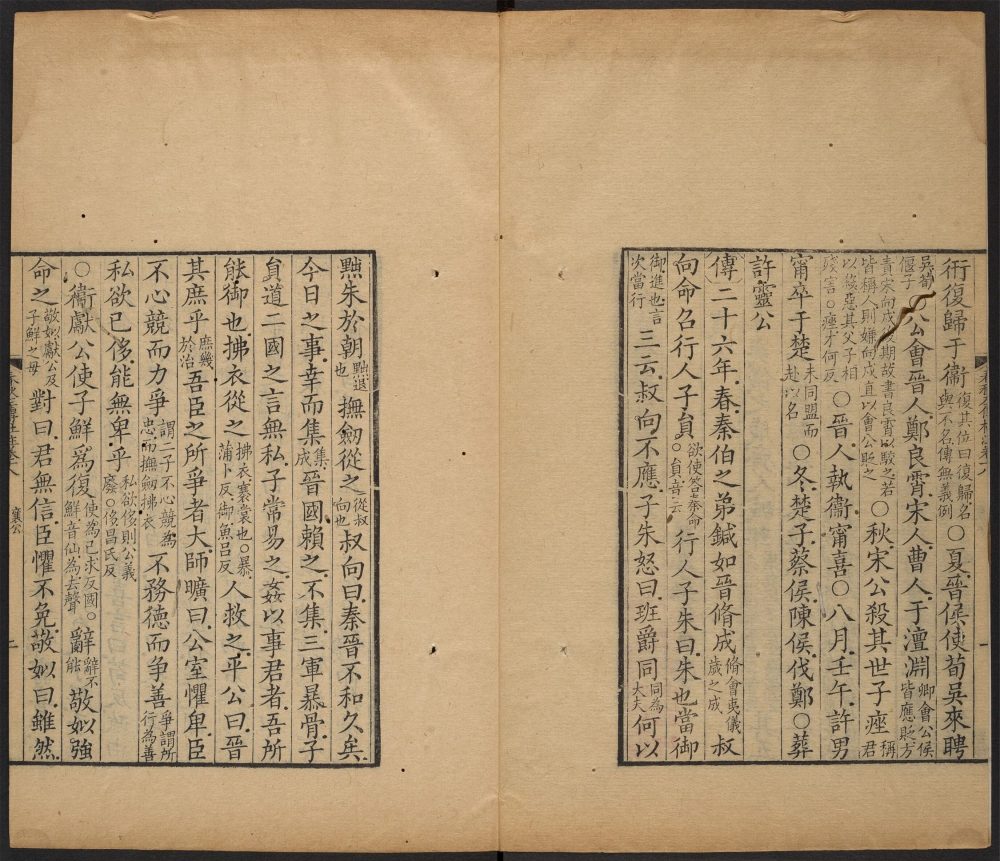 衎復歸于衞復其位曰復歸名與不名傳無義例○夏晉侯使荀吳來聘
吳荀偃子公會晉人鄭良霄宋人曹人于澶淵卿會公侯皆應貶方
責宋向戌後期故書良霄以駮之若皆稱人則嫌向戌直以會公貶之○秋宋公殺其世子痤稱君
以殺惡其父子相殘害○痤才何反○晉人執衞甯喜○八月壬午許男
甯卒于楚未同盟而赴以名○冬楚子蔡侯陳侯伐鄭○葬
許靈公
傳二十六年春秦伯之弟鍼如晉脩成脩會夷儀歲之成叔
向命召行人子員欲使荅秦命○員音云行人子朱曰朱也當御
御進也言次當行三云叔向不應子朱怒曰班爵同同為大夫何以
黜朱於朝黜退也撫劒從之從叔向也叔向曰秦晉不和久矣
今日之事幸而集集成晉國賴之不集三軍暴骨子
員道二國之言無私子常易之姦以事君者吾所
能御也拂衣從之拂衣褰裳也○暴蒲卜反御魚呂反人救之平公曰晉
其庶乎庶幾於治吾臣之所爭者大師曠曰公室懼卑臣
不心競而力爭謂二子不心競為忠而撫劒拂衣不務德而爭善爭謂所行為善
私欲已侈能無卑乎私欲侈則公義廢○侈昌氏反
○衞獻公使子鮮爲復使為己求反國○鮮音仙為去聲辭辭不能敬姒強
命之敬姒獻公及子鮮之母對曰君無信臣懼不免敬姒曰雖然
襄公